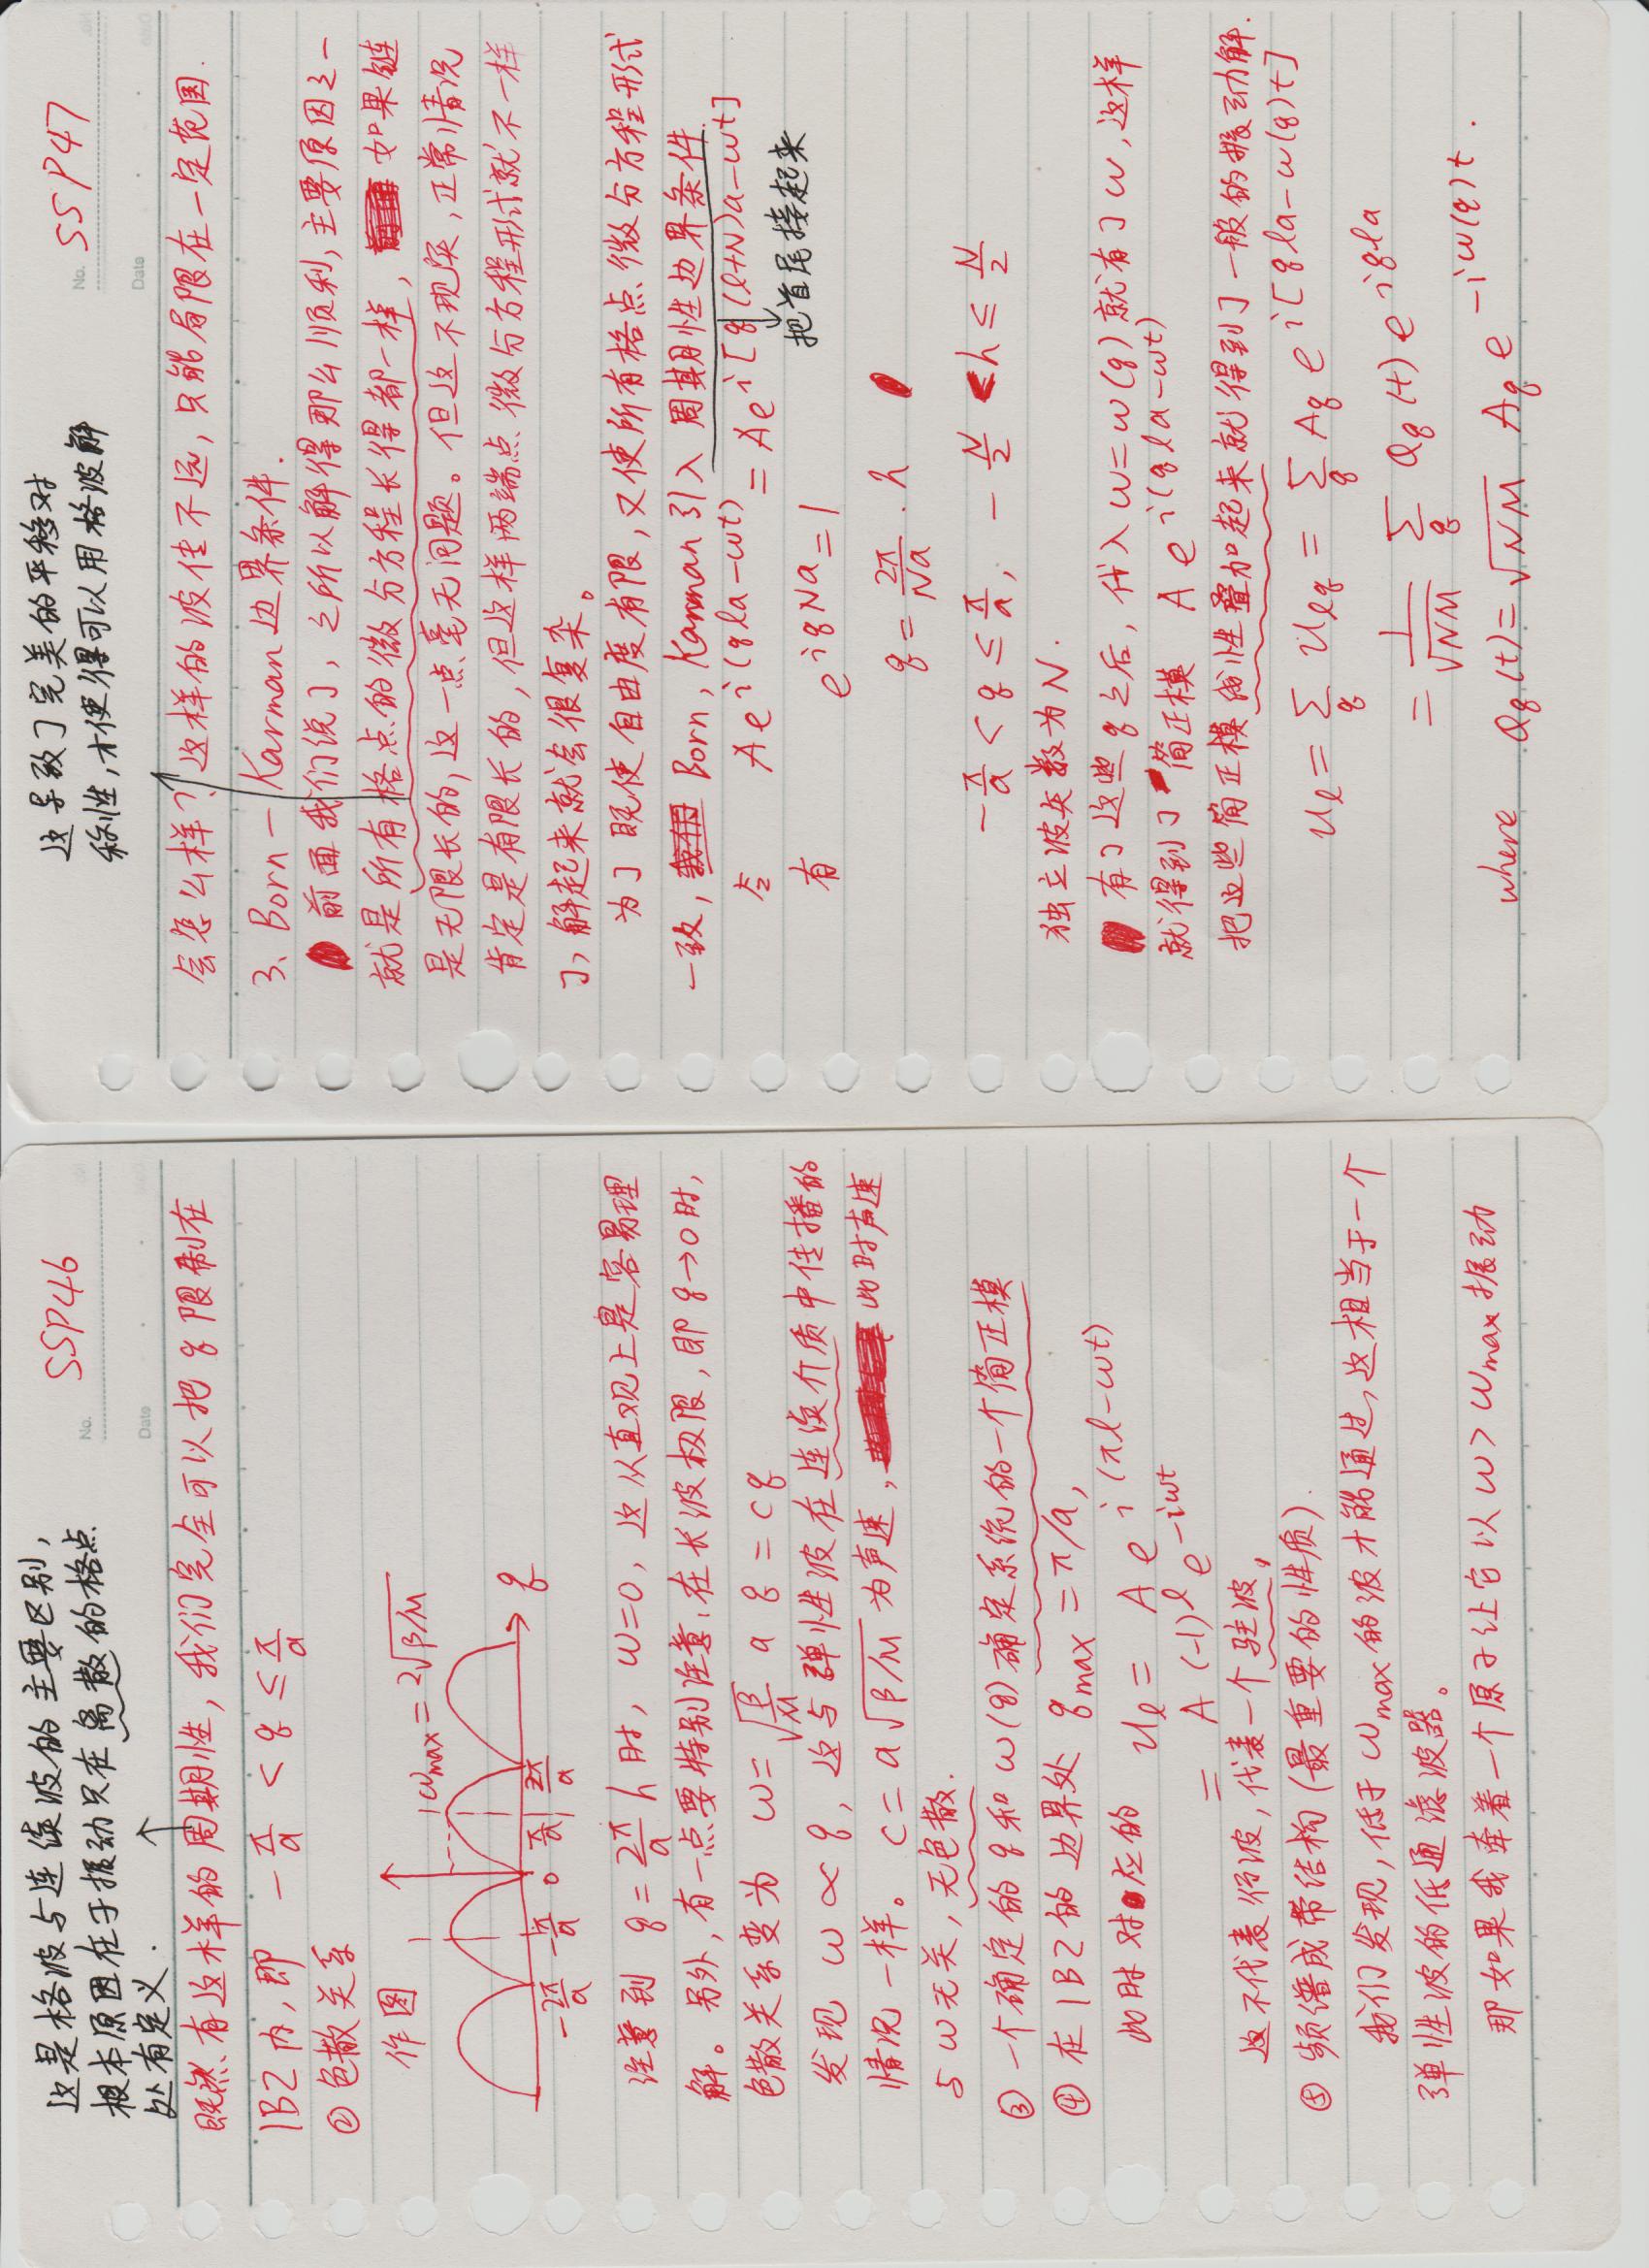 这是格波与连续波的主要区别，
根本原因在于振动只在离散的格点
处有定义.
SSP46
No.
Date
既然有这样的周期性，我们完全可以把 q 限制在
1BZ 内，即 -π/a < q ≤ π/a
② 色散关系
作图
ωmax = 2√(β/M)
q
-2π/a -π/a 0 π/a 2π/a
注意到 q = 2π/a h 时，ω=0，这从直观上是容易理
解。另外，有一点要特别注意，在长波极限，即 q→0 时，
色散关系变为 ω=√(β/M) a q = cq
发现 ω ∝ q，这与弹性波在连续介质中传播的
情况一样。c = a√(β/M) 为声速，此时声速
与 ω 无关，无色散.
③ 一个确定的 q 和 ω(q) 确定系统的一个简正模
④ 在 1BZ 的边界处 qmax = π/a,
此时对应的 u_l = A e^{i(πl-ωt)}
= A (-1)^l e^{-iωt}
这不代表行波，代表一个驻波，
⑤ 频谱成带结构（最重要的性质）.
我们发现，低于 ωmax 的波才能通过，这相当于一个
弹性波的低通滤波器。
那如果我牵着一个原子让它以 ω > ωmax 振动
这导致了完美的平移对
称性，才使得可以用格波解
No.
SSP47
Date
会怎么样？这样的波传不远，只能局限在一定范围.
3、Born — Karman 边界条件.
前面我们说了，之所以解得那么顺利，主要原因之一
就是所有格点的微分方程长得都一样，如果链
是无限长的，这一点毫无问题。但这不现实，正常情况
肯定是有限长的，但这样两端点微分方程形式就不一样
了，解起来就会很复杂。
为了既使自由度有限，又使所有格点微分方程形式
一致，Born, Karman 引入周期性边界条件.
令 Ae^{i(qla-ωt)} = Ae^{i[q(l+N)a-ωt]}
把首尾接起来
有 e^{iqNa} = 1
q = 2π/Na · h
-π/a < q ≤ π/a, -N/2 < h ≤ N/2
独立波矢数为 N.
有了这些 q 之后，代入 ω=ω(q) 就有了 ω，这样
就得到了简正模 A e^{i(qla-ωt)}
把这些简正模线性叠加起来就得到了一般的振动解.
u_l = Σ_q u_{lq} = Σ_q A_q e^{i[qla-ω(q)t]}
= 1/√(NM) Σ_q Q_q(t) e^{iqla}
where Q_q(t) = √(NM) A_q e^{-iω(q)t}.